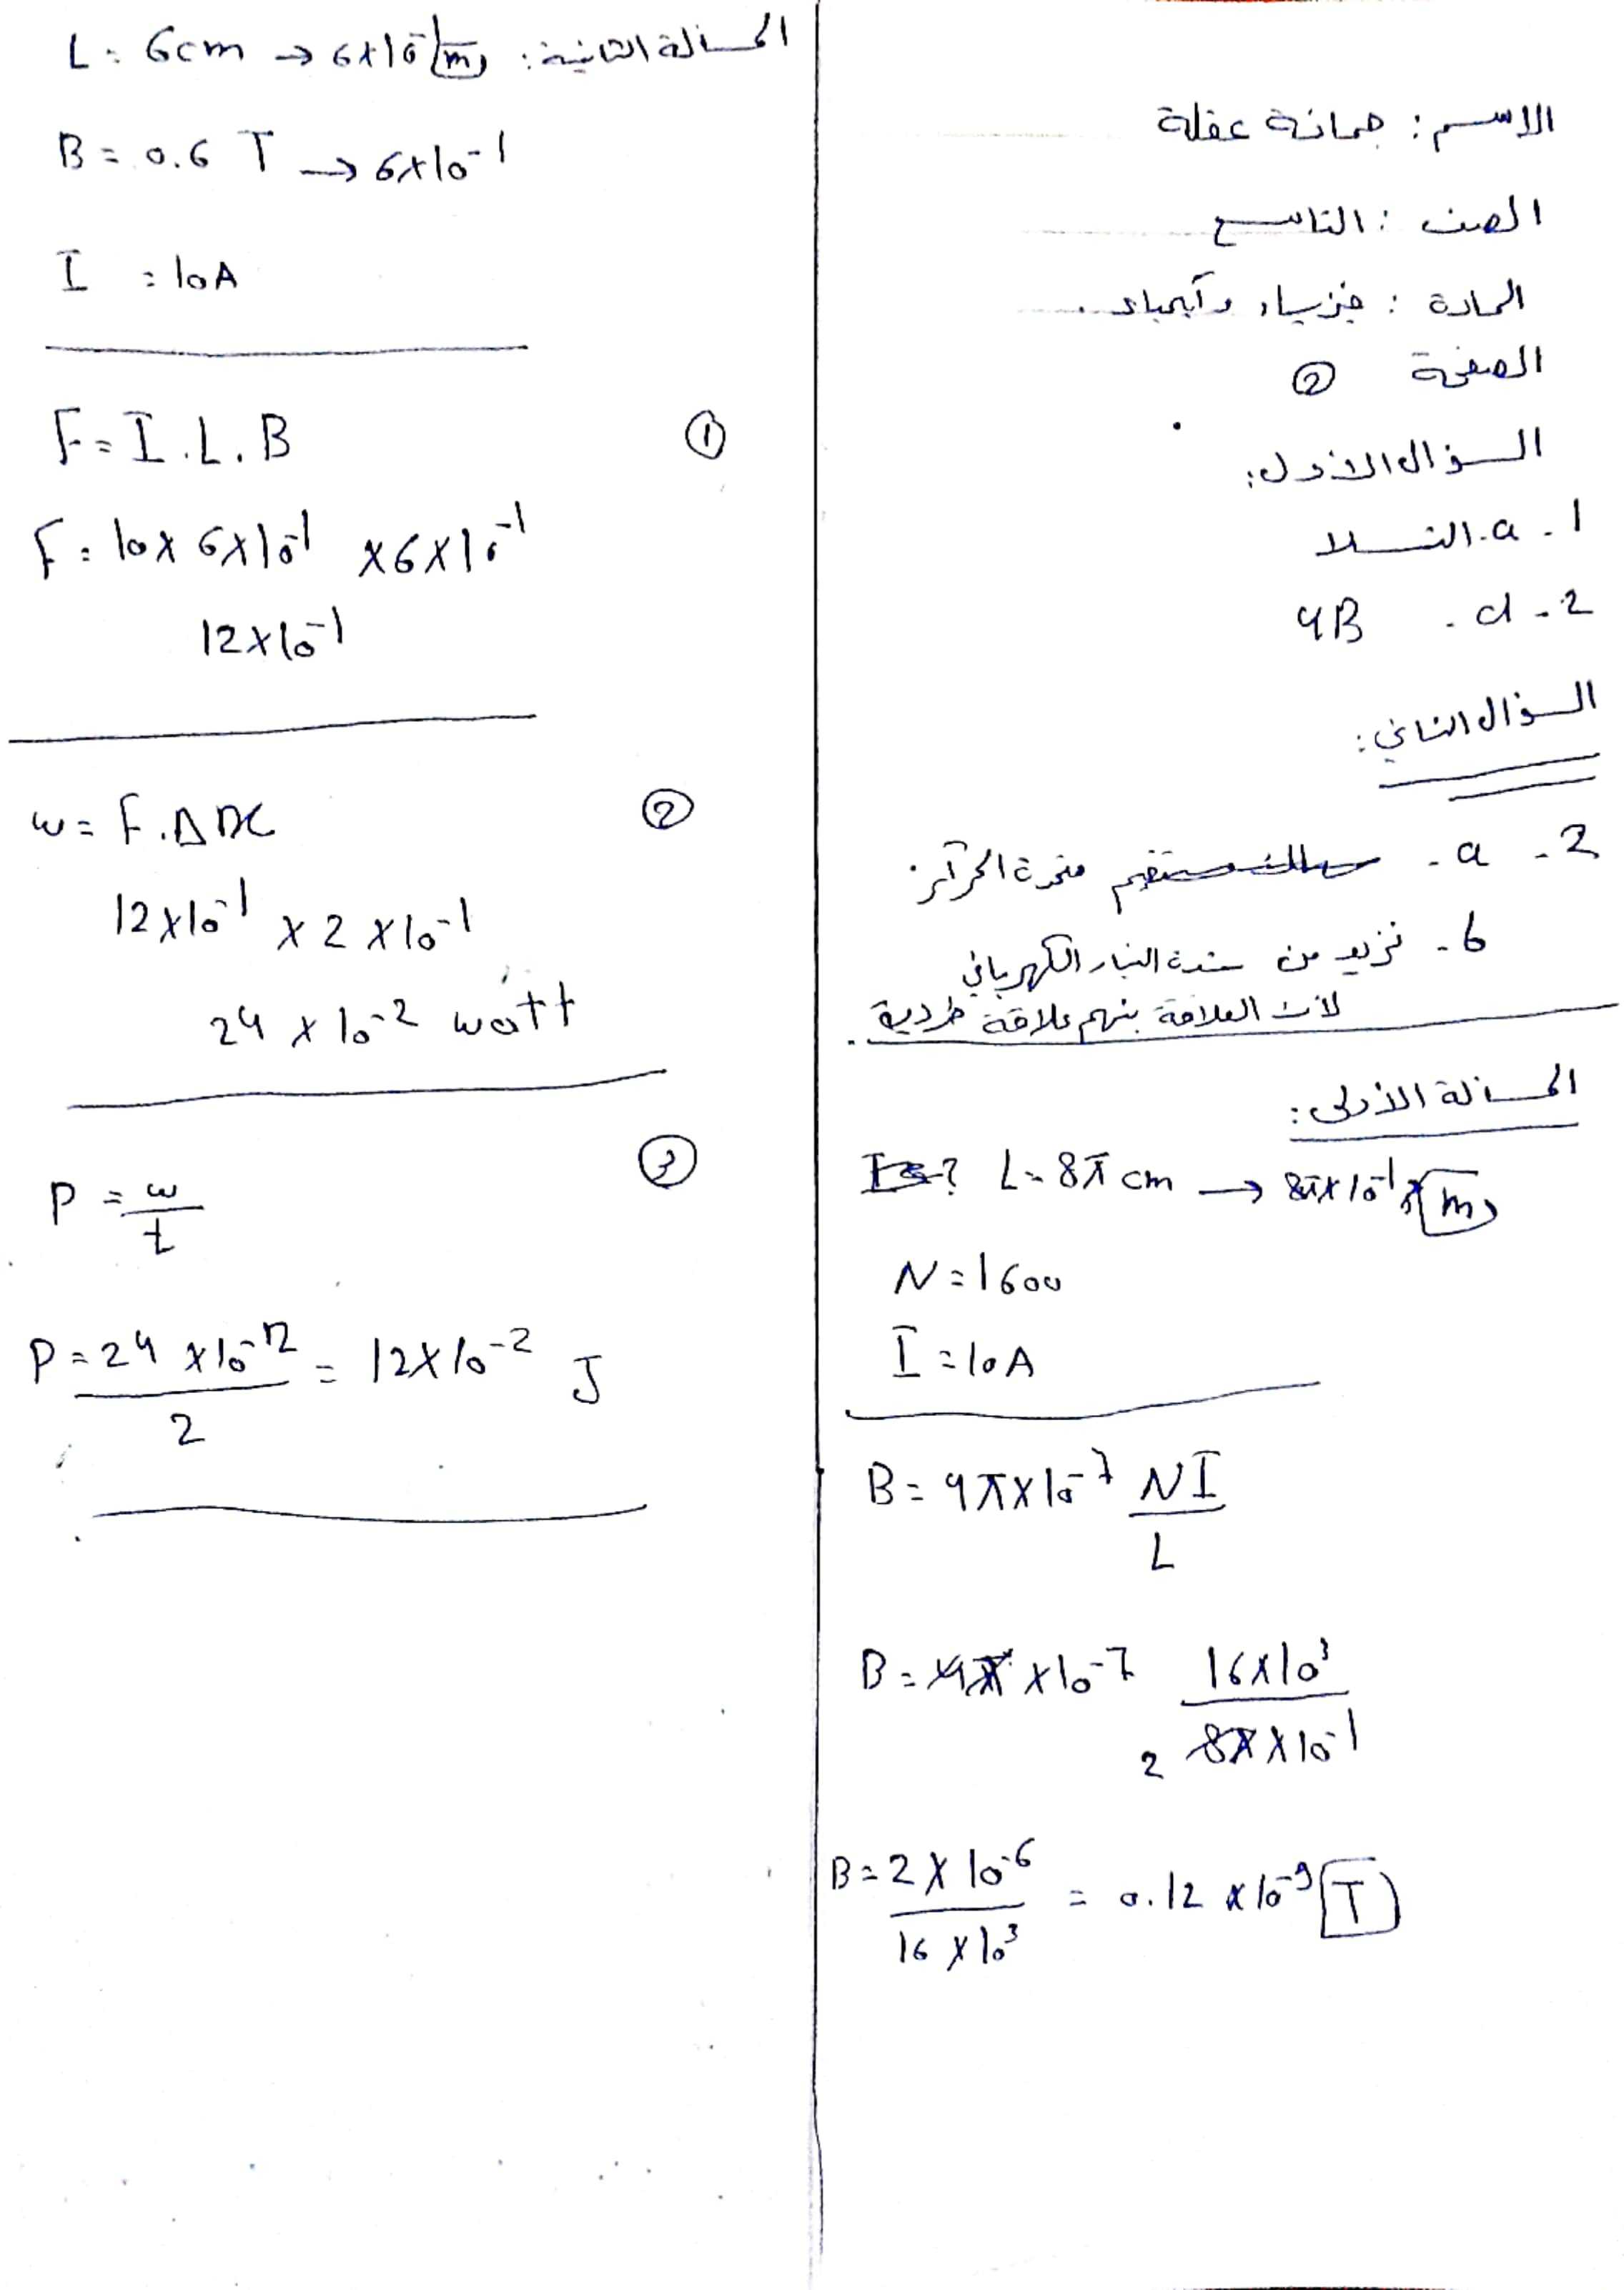 الاسم : جمانة عقلة
الصف : التاسع
المادة : فيزياء وكيمياء .
الصفحة ②
السؤال الأول:
1 - a. التسلا
2 - d . 4B
السؤال الثاني:
2 - a -
b - نزيد من شدة التيار الكهربائي
لأن العلاقة بينهم علاقة طردية .
المسألة الأولى:
L = 8π cm → 8π×10^-1 m
N = 1600
I = 10A
B = 4π×10^-7 NI / L
B = 4π ×10^-7 16×10^3 / 8π×10^-1 2
B = 2 × 10^-6 / 16 × 10^3 = 0.12 × 10^-9 T
المسألة الثانية:
L = 6cm → 6×10^-1 m
B = 0.6 T → 6×10^-1
I = 10A
① F = I.L.B
F = 10× 6×10^-1 ×6×10^-1
12×10^-1
② w = F.Δx
12×10^-1 × 2 ×10^-1
24 × 10^-2 watt
③ P = w / t
P = 24 ×10^-2 / 2 = 12×10^-2 J